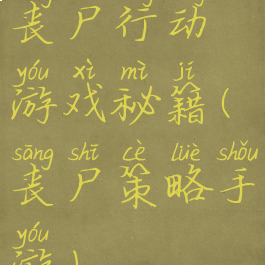 丧尸行动
yóu xì mì jí
游戏秘籍(
sāng shī cè lüè shǒu
丧尸策略手
yóu
游)